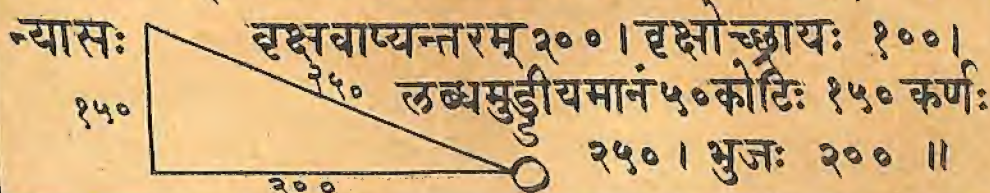 न्यासः वृक्षवाप्यन्तरम् २०० । वृक्षोच्छ्रायः १०० ।
२५०
१५० लब्धमुड्डीयमानं ५० कोटिः १५० कर्णः
२५० । भुजः २०० ॥
२००